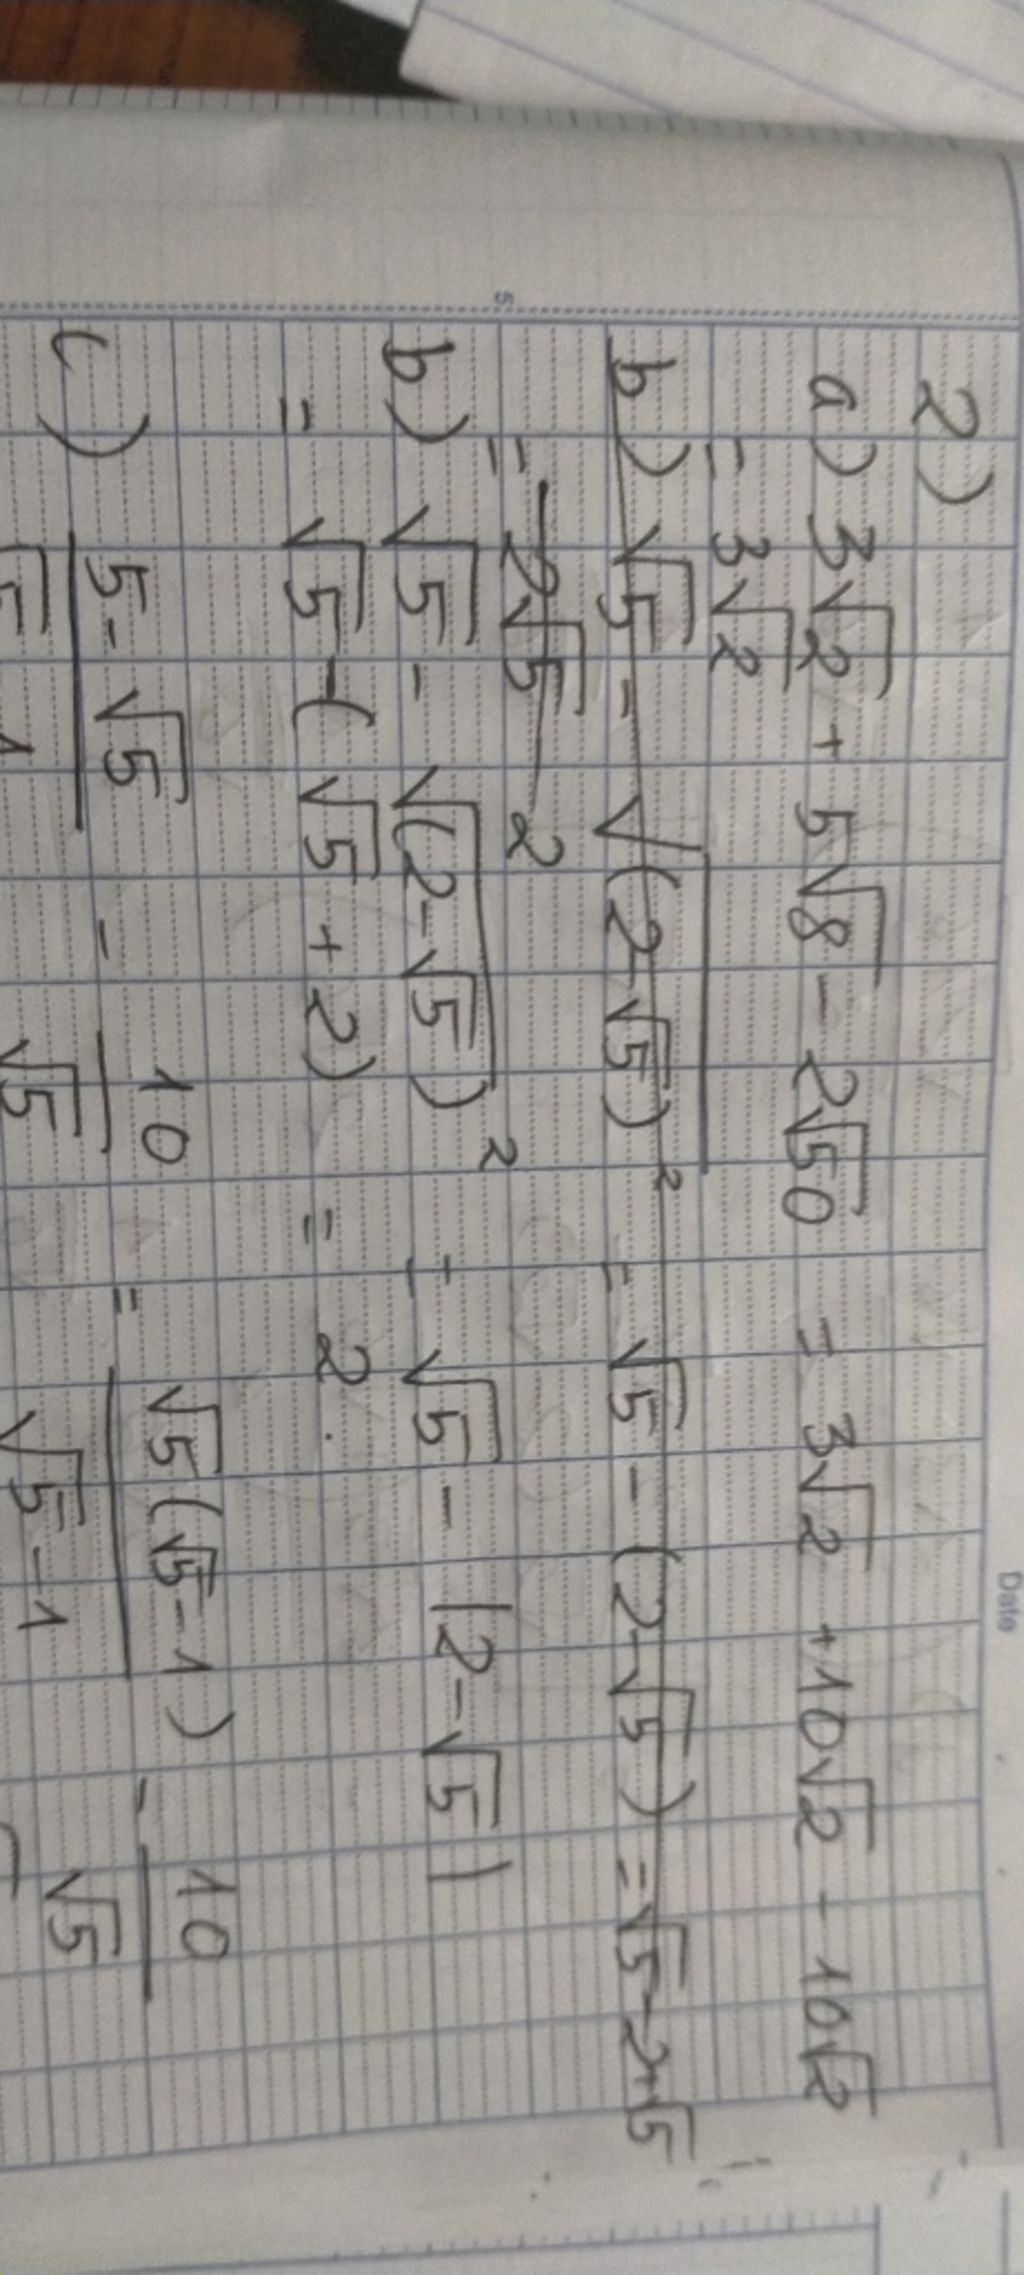 Date
2)
a) 3√2 + 5√8 - 2√50 = 3√2 + 10√2 - 10√2
= 3√2
b) √5 - √(2-√5)² = √5 - (2-√5) = √5-2+√5
= 2√5 - 2
5
b) √5 - √(2-√5)² = √5 - |2-√5|
= √5 - (√5 + 2) = 2.
c) (5-√5)/(√5 1) - 10/√5 = √5(√5-1)/(√5-1) - 10/√5